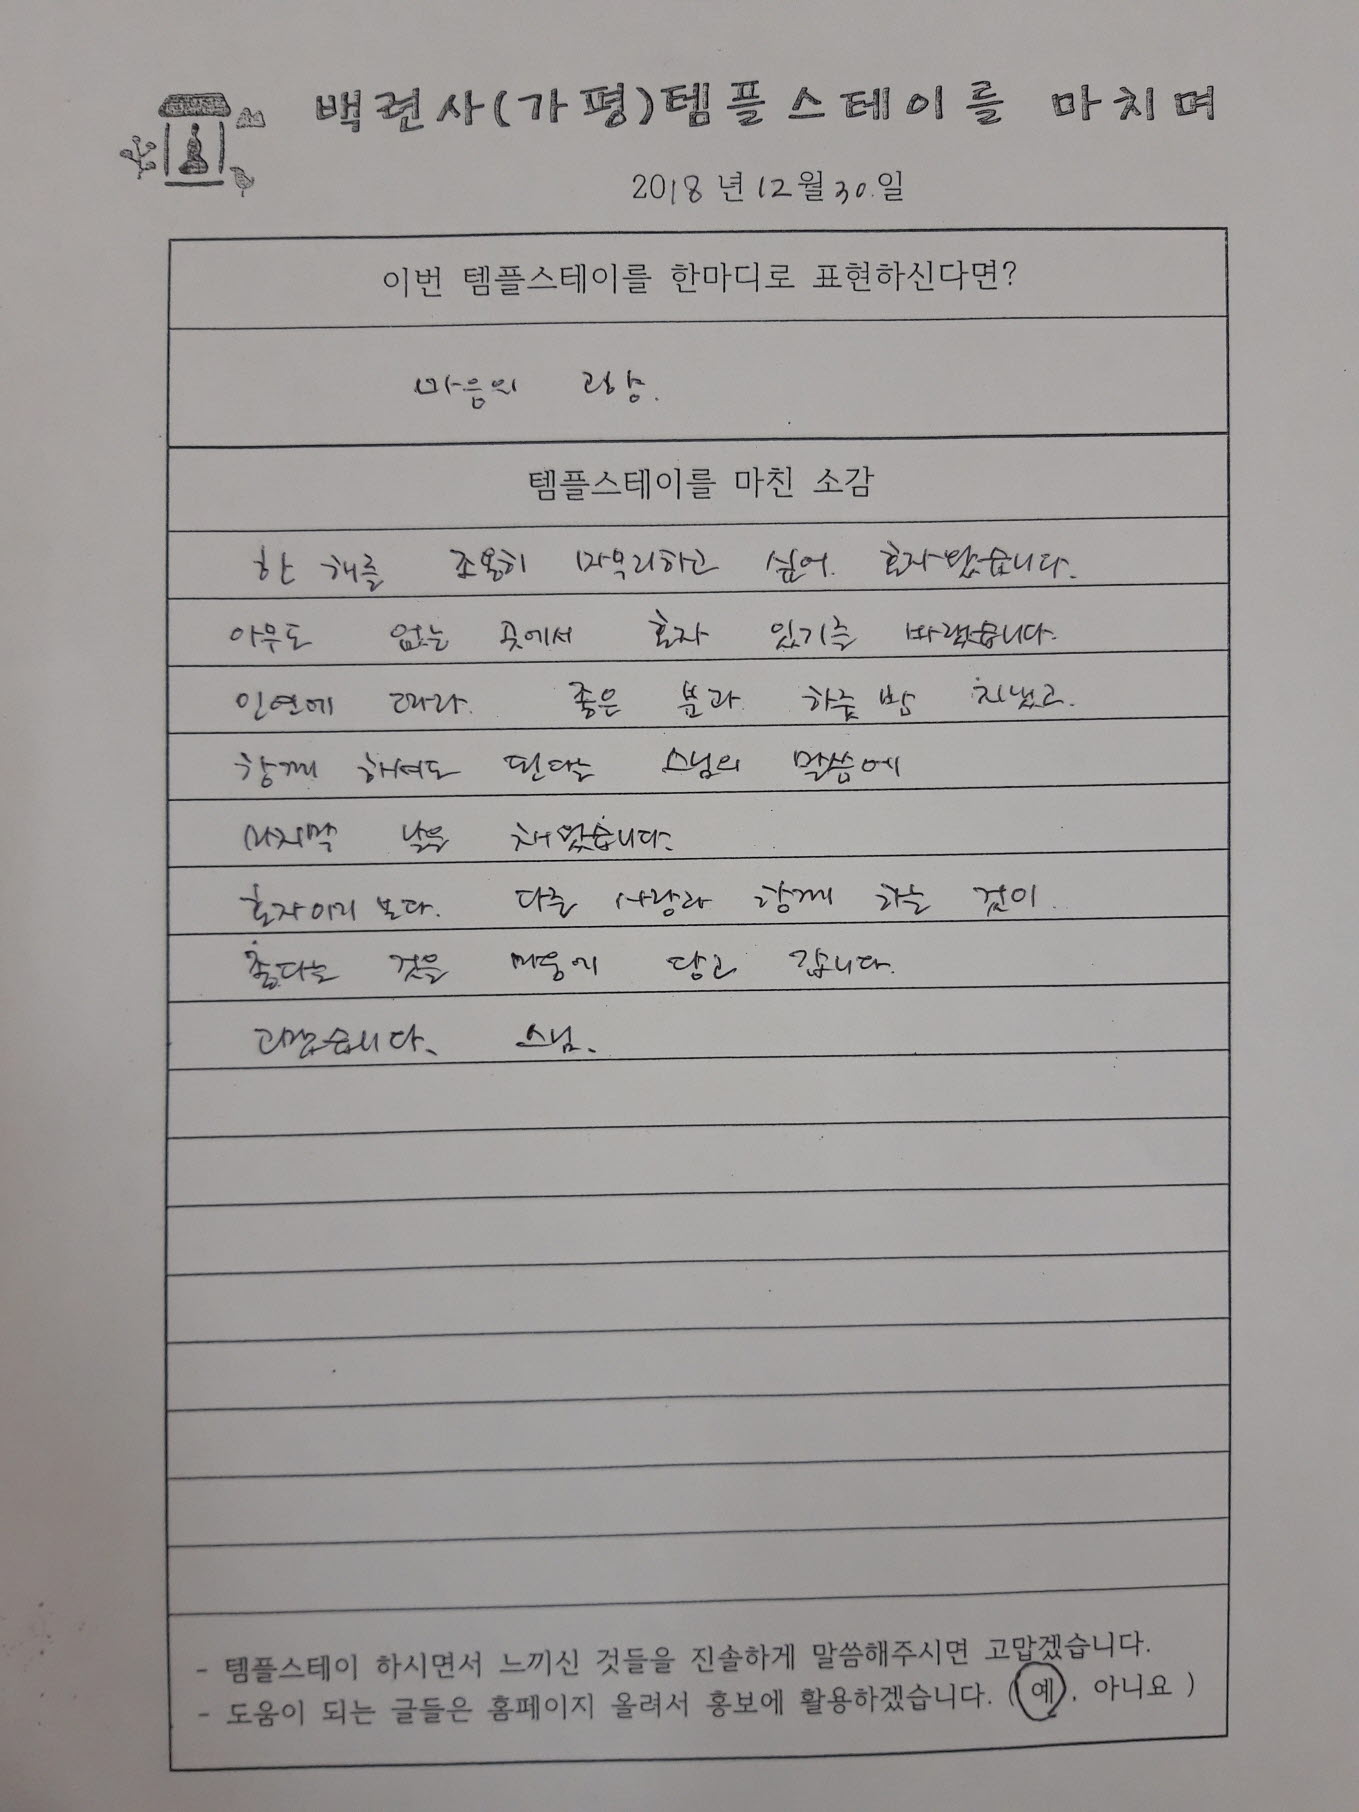 백련사(가평)템플스테이를 마치며
2018년 12월 30.일
이번 템플스테이를 한마디로 표현하신다면?
마음의 고향.
템플스테이를 마친 소감
한 해를 조용히 마무리하고 싶어. 혼자 왔습니다.
아무도 없는 곳에서 혼자 있기를 바랬습니다.
인연에 따라. 좋은 분과 하룻밤 지냈고.
함께 해져도 된다는 스님의 말씀에
마지막 날을 채웠습니다.
혼자이기 보다. 다른 사람과 함께 하는 것이.
좋다는 것을 마음에 담고 갑니다.
고맙습니다. 스님.
- 템플스테이 하시면서 느끼신 것들을 진솔하게 말씀해주시면 고맙겠습니다.
- 도움이 되는 글들은 홈페이지 올려서 홍보에 활용하겠습니다. (예, 아니요 )